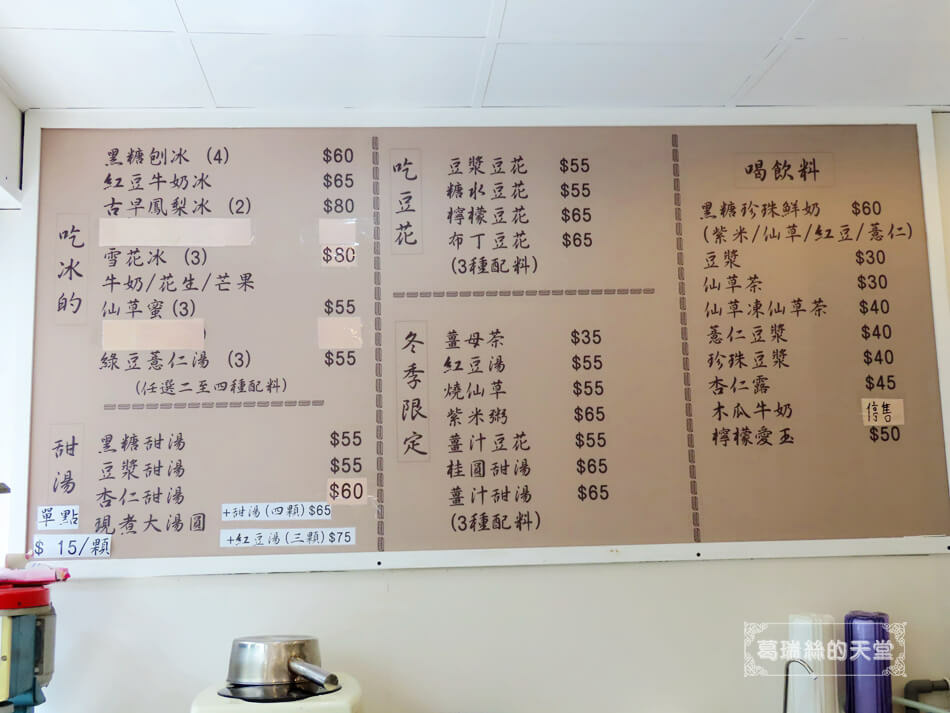 吃冰的
黑糖刨冰 (4) $60
紅豆牛奶冰 $65
古早鳳梨冰 (2) $80
雪花冰 (3) $80
牛奶/花生/芒果
仙草蜜(3) $55
)
綠豆薏仁湯 (3) $55
(任選二至四種配料)
甜湯
黑糖甜湯 $55
豆漿甜湯 $55
杏仁甜湯 $60
現煮大湯圓
單點
$ 15/顆
+甜湯(四顆)$65
+紅豆湯(三顆)$75
吃豆花
豆漿豆花 $55
糖水豆花 $55
檸檬豆花 $65
布丁豆花 $65
(3種配料)
冬季限定
薑母茶 $35
紅豆湯 $55
燒仙草 $55
紫米粥 $65
薑汁豆花 $55
桂圓甜湯 $65
薑汁甜湯 $65
(3種配料)
喝飲料
黑糖珍珠鮮奶 $60
(紫米/仙草/紅豆/薏仁)
豆漿 $30
仙草茶 $30
仙草凍仙草茶 $40
薏仁豆漿 $40
珍珠豆漿 $40
杏仁露 $45
木瓜牛奶 停售
檸檬愛玉 $50
葛瑞絲的天堂